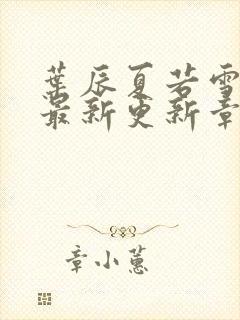 葉辰夏若雪
最新更新章
章小蕙